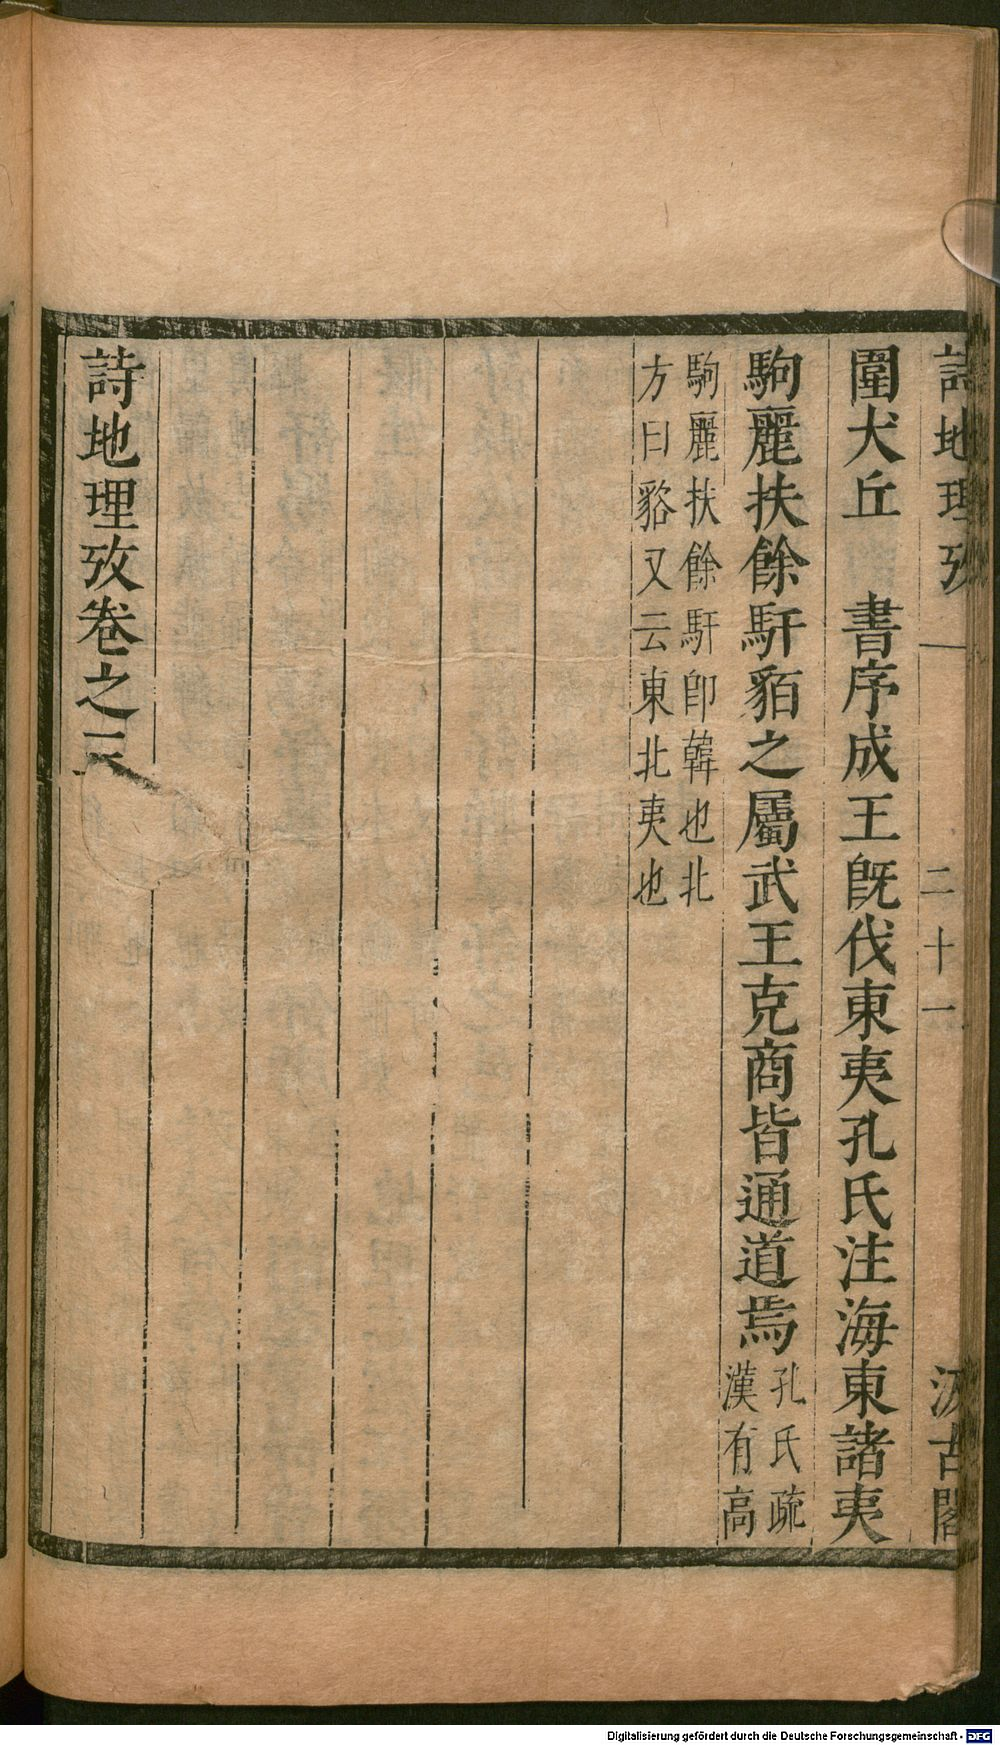 詩地理攷 二十一 汲古閣
圍犬丘 書序成王旣伐東夷孔氏注海東諸夷
駒麗扶餘馯貊之屬武王克商皆通道焉孔氏疏
漢有高
駒麗扶餘馯卽韓也北
方曰貉又云東北夷也
詩地理攷卷之三
Digitalisierung gefördert durch die Deutsche Forschungsgemeinschaft - DFG